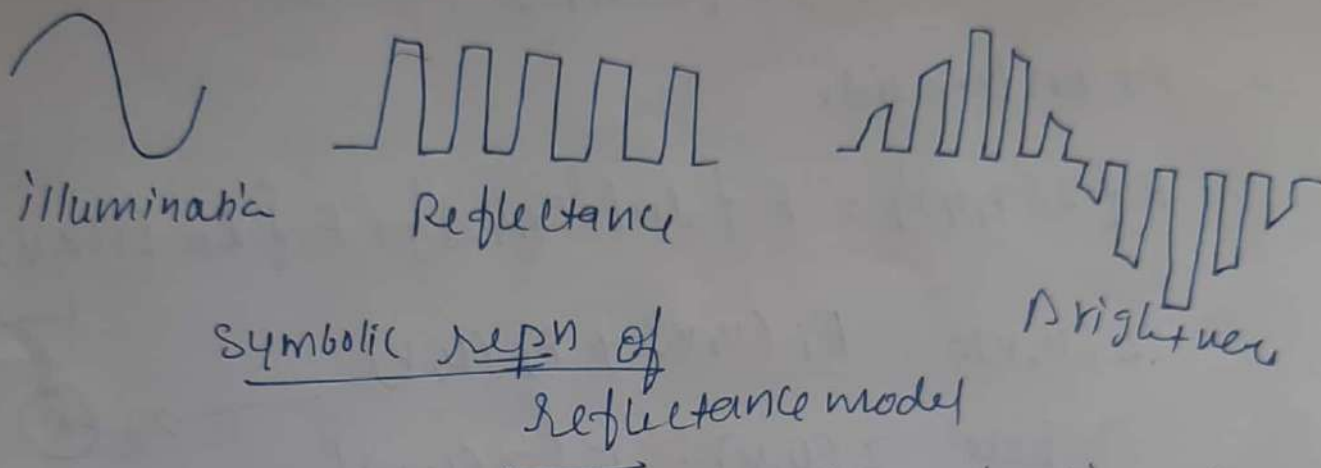 illuminatia
Reflectance
Brightnes
symbolic repn of
reflectance model